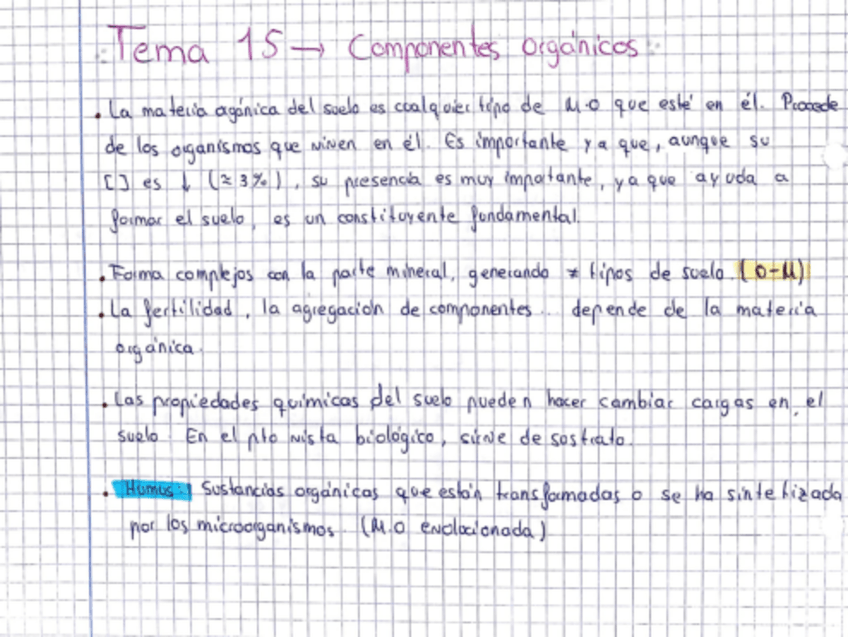 Tema 15 → Componentes orgánicos
· La materia orgánica del suelo es cualquier tipo de M.O que esté en él. Procede
de los organismos que viven en él. Es importante ya que, aunque su
[] es ↓ (≈ 3%), su presencia es muy importante, ya que ayuda a
formar el suelo, es un constituyente fundamental.
· Forma complejos con la parte mineral, generando ≠ tipos de suelo. (O-M)
· La fertilidad, la agregación de componentes... depende de la materia
orgánica.
· Las propiedades químicas del suelo pueden hacer cambiar cargas en el
suelo. En el pto vista biológico, sirve de sustrato.
· Humus: Sustancias orgánicas que están transformadas o se ha sintetizada
por los microorganismos. (M.O evolucionada)